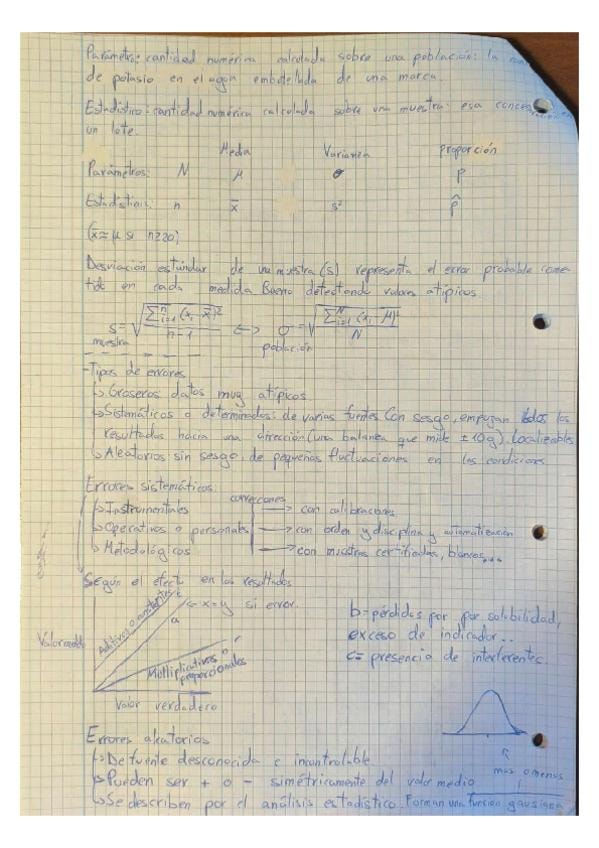 Parámetro: cantidad numérica calculada sobre una población: la
de potasio en el agua embotellada de una marca.
Estadístico: cantidad numérica calculada sobre una muestra: esa concentración en
un lote.
Media Varianza Proporción
Parámetros: N μ σ P
Estadísticos: n x̄ s² p̂
(x̄ ≈ μ si n≥20)
Desviación estándar de una muestra (s) representa el error probable come-
tido en cada medida. Bueno detectando valores atípicos.
s = √(∑ⁿᵢ₌₁ (xᵢ - x̄)² / n-1) <-> σ = √(∑ᴺᵢ₌₁ (xᵢ - μ)² / N)
muestra población
-Tipos de errores
↳ Groseros datos muy atípicos.
↳ Sistemáticos o determinados: de varias fuentes Con sesgo, empujan todos los
resultados hacia una dirección (una balanza que mide ±10g). Localizables
↳ Aleatorios: sin sesgo, de pequeñas fluctuaciones en las condiciones
Errores sistemáticos: correcciones
↳ Instrumentales → con calibraciones
↳ Operativos o personales → con orden y disciplina y automatización
↳ Metodológicos → con muestras certificadas, blancos...
Según el efecto en los resultados
Aditivos o constantes
<- x=y si error.
a
Valor medido
Multiplicativos o
proporcionales
Valor verdadero
b= pérdidas por por solubilidad,
exceso de indicador..
c= presencia de interferentes.
Errores aleatorios
↳ De fuente desconocida e incontrolable
↳ Pueden ser + o - simétricamente del valor medio
más o menos
↳ Se describen por el análisis estadístico. Forman una función gausiana